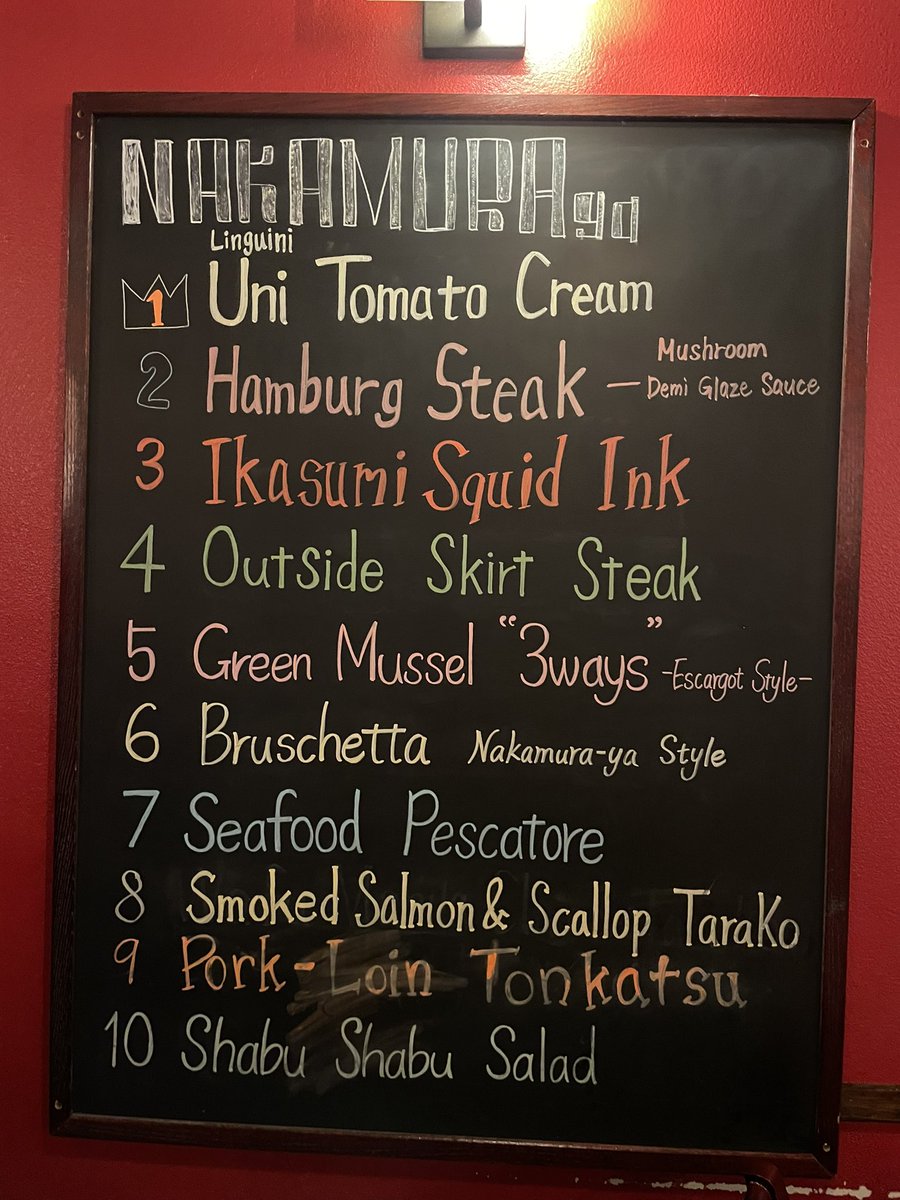 NAKAMURA ya
Linguini
1 Uni Tomato Cream
2 Hamburg Steak – Mushroom
Demi Glaze Sauce
3 Ikasumi Squid Ink
4 Outside Skirt Steak
5 Green Mussel “3ways” -Escargot Style-
6 Bruschetta Nakamura-ya Style
7 Seafood Pescatore
8 Smoked Salmon & Scallop TaraKo
9 Pork-Loin Tonkatsu
10 Shabu Shabu Salad